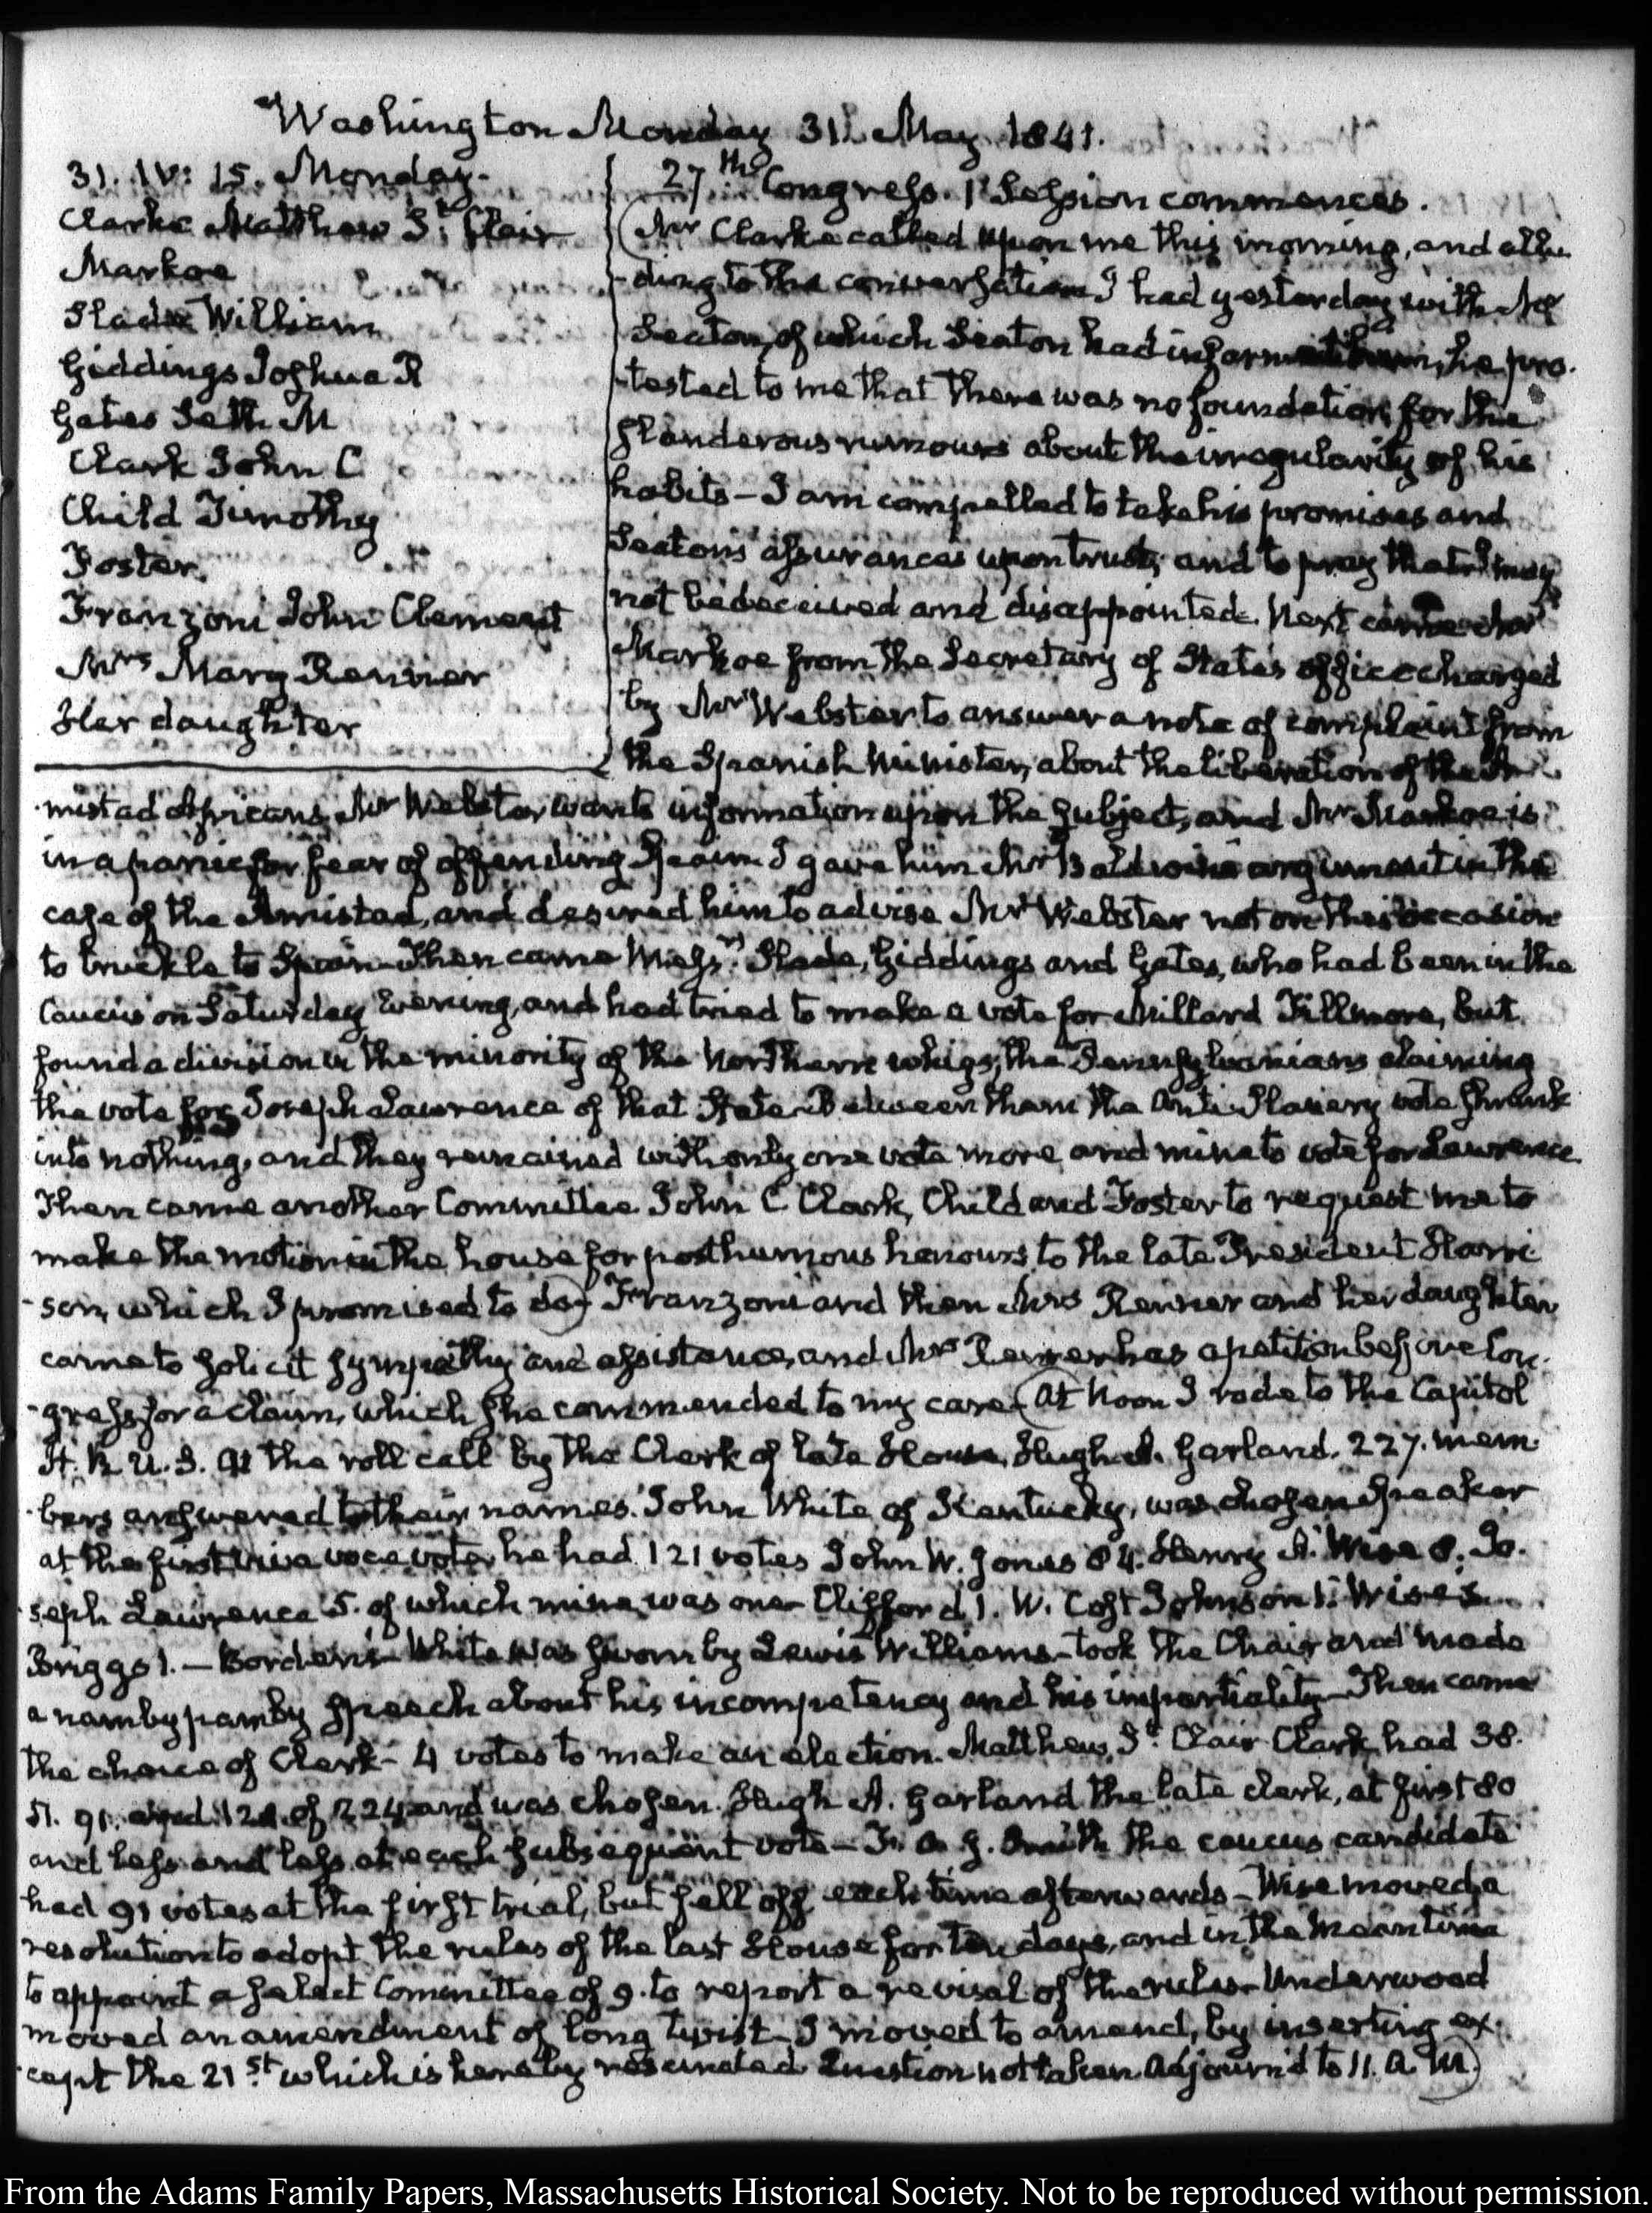 Washington Monday 31. May 1841.
31. IV: 15. Monday.
Clarke Matthew St. Clair
Markoe
Slade William
Giddings Joshua R
Gates Seth M
Clark John C
Child Timothy
Foster.
Franzoni John Clement
Mrs Mary Renner
Her daughter
27th Congress. 1st Session commences.
(Mr Clarke called upon me this morning, and allu-
-ding to the conversation I had yesterday with Mr
Seaton, of which Seaton had informed him, he pro-
-tested to me that there was no foundation for the
slanderous rumours about the irregularity of his
habits – I am compelled to take his promises and
Seaton's assurances upon trust, and to pray that I may
not be deceived and disappointed. Next came Mr
Markoe from the Secretary of State's office charged
by Mr Webster to answer a note of complaint from
the Spanish Minister, about the liberation of the A-
-mistad Africans. Mr Webster wants information upon the subject, and Mr Markoe is
in a panic for fear of offending Spain. I gave him Mr Baldwin's argument in the
case of the Amistad, and desired him to advise Mr Webster not on this occasion
to truckle to Spain. Then came Messrs. Slade, Giddings and Gates, who had been in the
Caucus on Saturday Evening, and had tried to make a vote for Millard Fillmore, but
found a division in the minority of the Northern whigs, the Pennsylvanians claiming
the vote for Joseph Lawrence of that State. Between them the Anti-Slavery vote shrunk
into nothing, and they remained with only one vote more and mine to vote for Lawrence.
Then came another Committee John C Clark, Child and Foster to request me to
make the motion in the house for posthumous honours to the late President Harri-
-son, which I promised to do) Franzoni and then Mrs Renner and her daughter
came to solicit sympathy and assistance, and Mrs Renner has a petition before Con-
-gress for a claim, which she commended to my care. (At Noon I rode to the Capitol
H. R. U. S. At the roll call by the Clerk of late House, Hugh A. Garland. 227. mem-
-bers answered to their names. John White of Kentucky, was chosen Speaker
at the first viva voce vote, he had 121 votes John W. Jones 84. Henry A. Wise 8. Jo-
-seph Lawrence 5. of which mine was one – Clifford 1. W. Cost Johnson 1. Wise's
Briggs 1. – Borden's White was sworn by Lewis Williams – took the Chair and made
a namby pamby speech about his incompetency and his impartiality – Then came
the choice of Clerk – 4 votes to make an election. Matthew St. Clair Clark had 38.
91. and of 224 and was chosen. Hugh A. Garland the late clerk, at first 80
and less and less at each subsequent vote – F. O. J. Smith the caucus candidate
had 91 votes at the first trial, but fell off each time afterwards – Wise moved a
resolution to adopt the rules of the last House for ten days, and in the mean time
to appoint a select Committee of 9. to report a revisal of the rules – Underwood
moved an amendment of long twist – I moved to amend, by inserting ex-
-cept the 21st. which is hereby rescinded. Question not taken. Adjourn'd to 11. A M.)
From the Adams Family Papers, Massachusetts Historical Society. Not to be reproduced without permission.